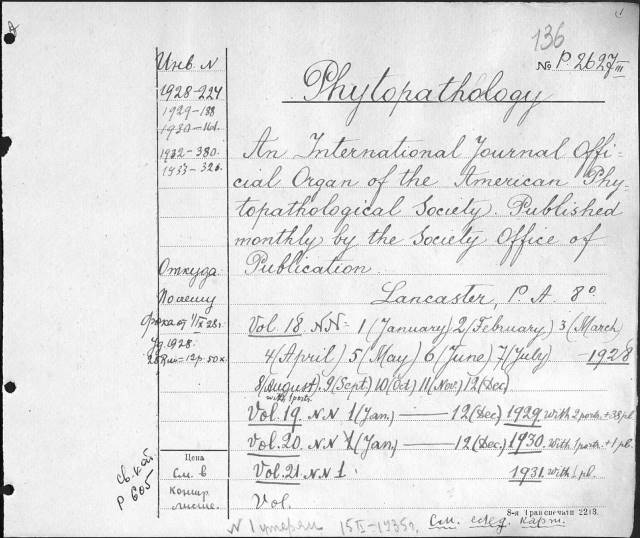 136
№ P. 2627 III
Инв N
Phytopathology
1928-224
1929-188
1930-161.
1932-380.
1933-326.
An International Journal Offi-
cial Organ of the American Phy-
topathological Society. Published
monthly by the Society Office of
Publication.
Lancaster, P. A. 8°
Откуда
По чему
от 1/IX 28г.
1928.
Vol. 18. NN- 1 (January) 2 (February) 3 (March)
4 (April) 5 (May) 6 (June) 7 (July) 1928
8 (August). 9 (Sept.) 10 (Oct) 11 (Nov.) 12 (Dec)
with 1 portr.
Vol. 19. NN 1 (Jan.) — 12 (Dec) 1929 with 2 portr. + 38 pl.
Vol. 20. NN 1 (Jan.) — 12 (Dec.) 1930. with 1 portr. + 1 pl.
Vol. 21. NN 1. 1931. with 1 pl.
Vol.
Цена
См. в
конце
св. кат.
P 605
8-я Транспечати 2213.
N 1 утерян 15 II-1935г. См. след. карт.